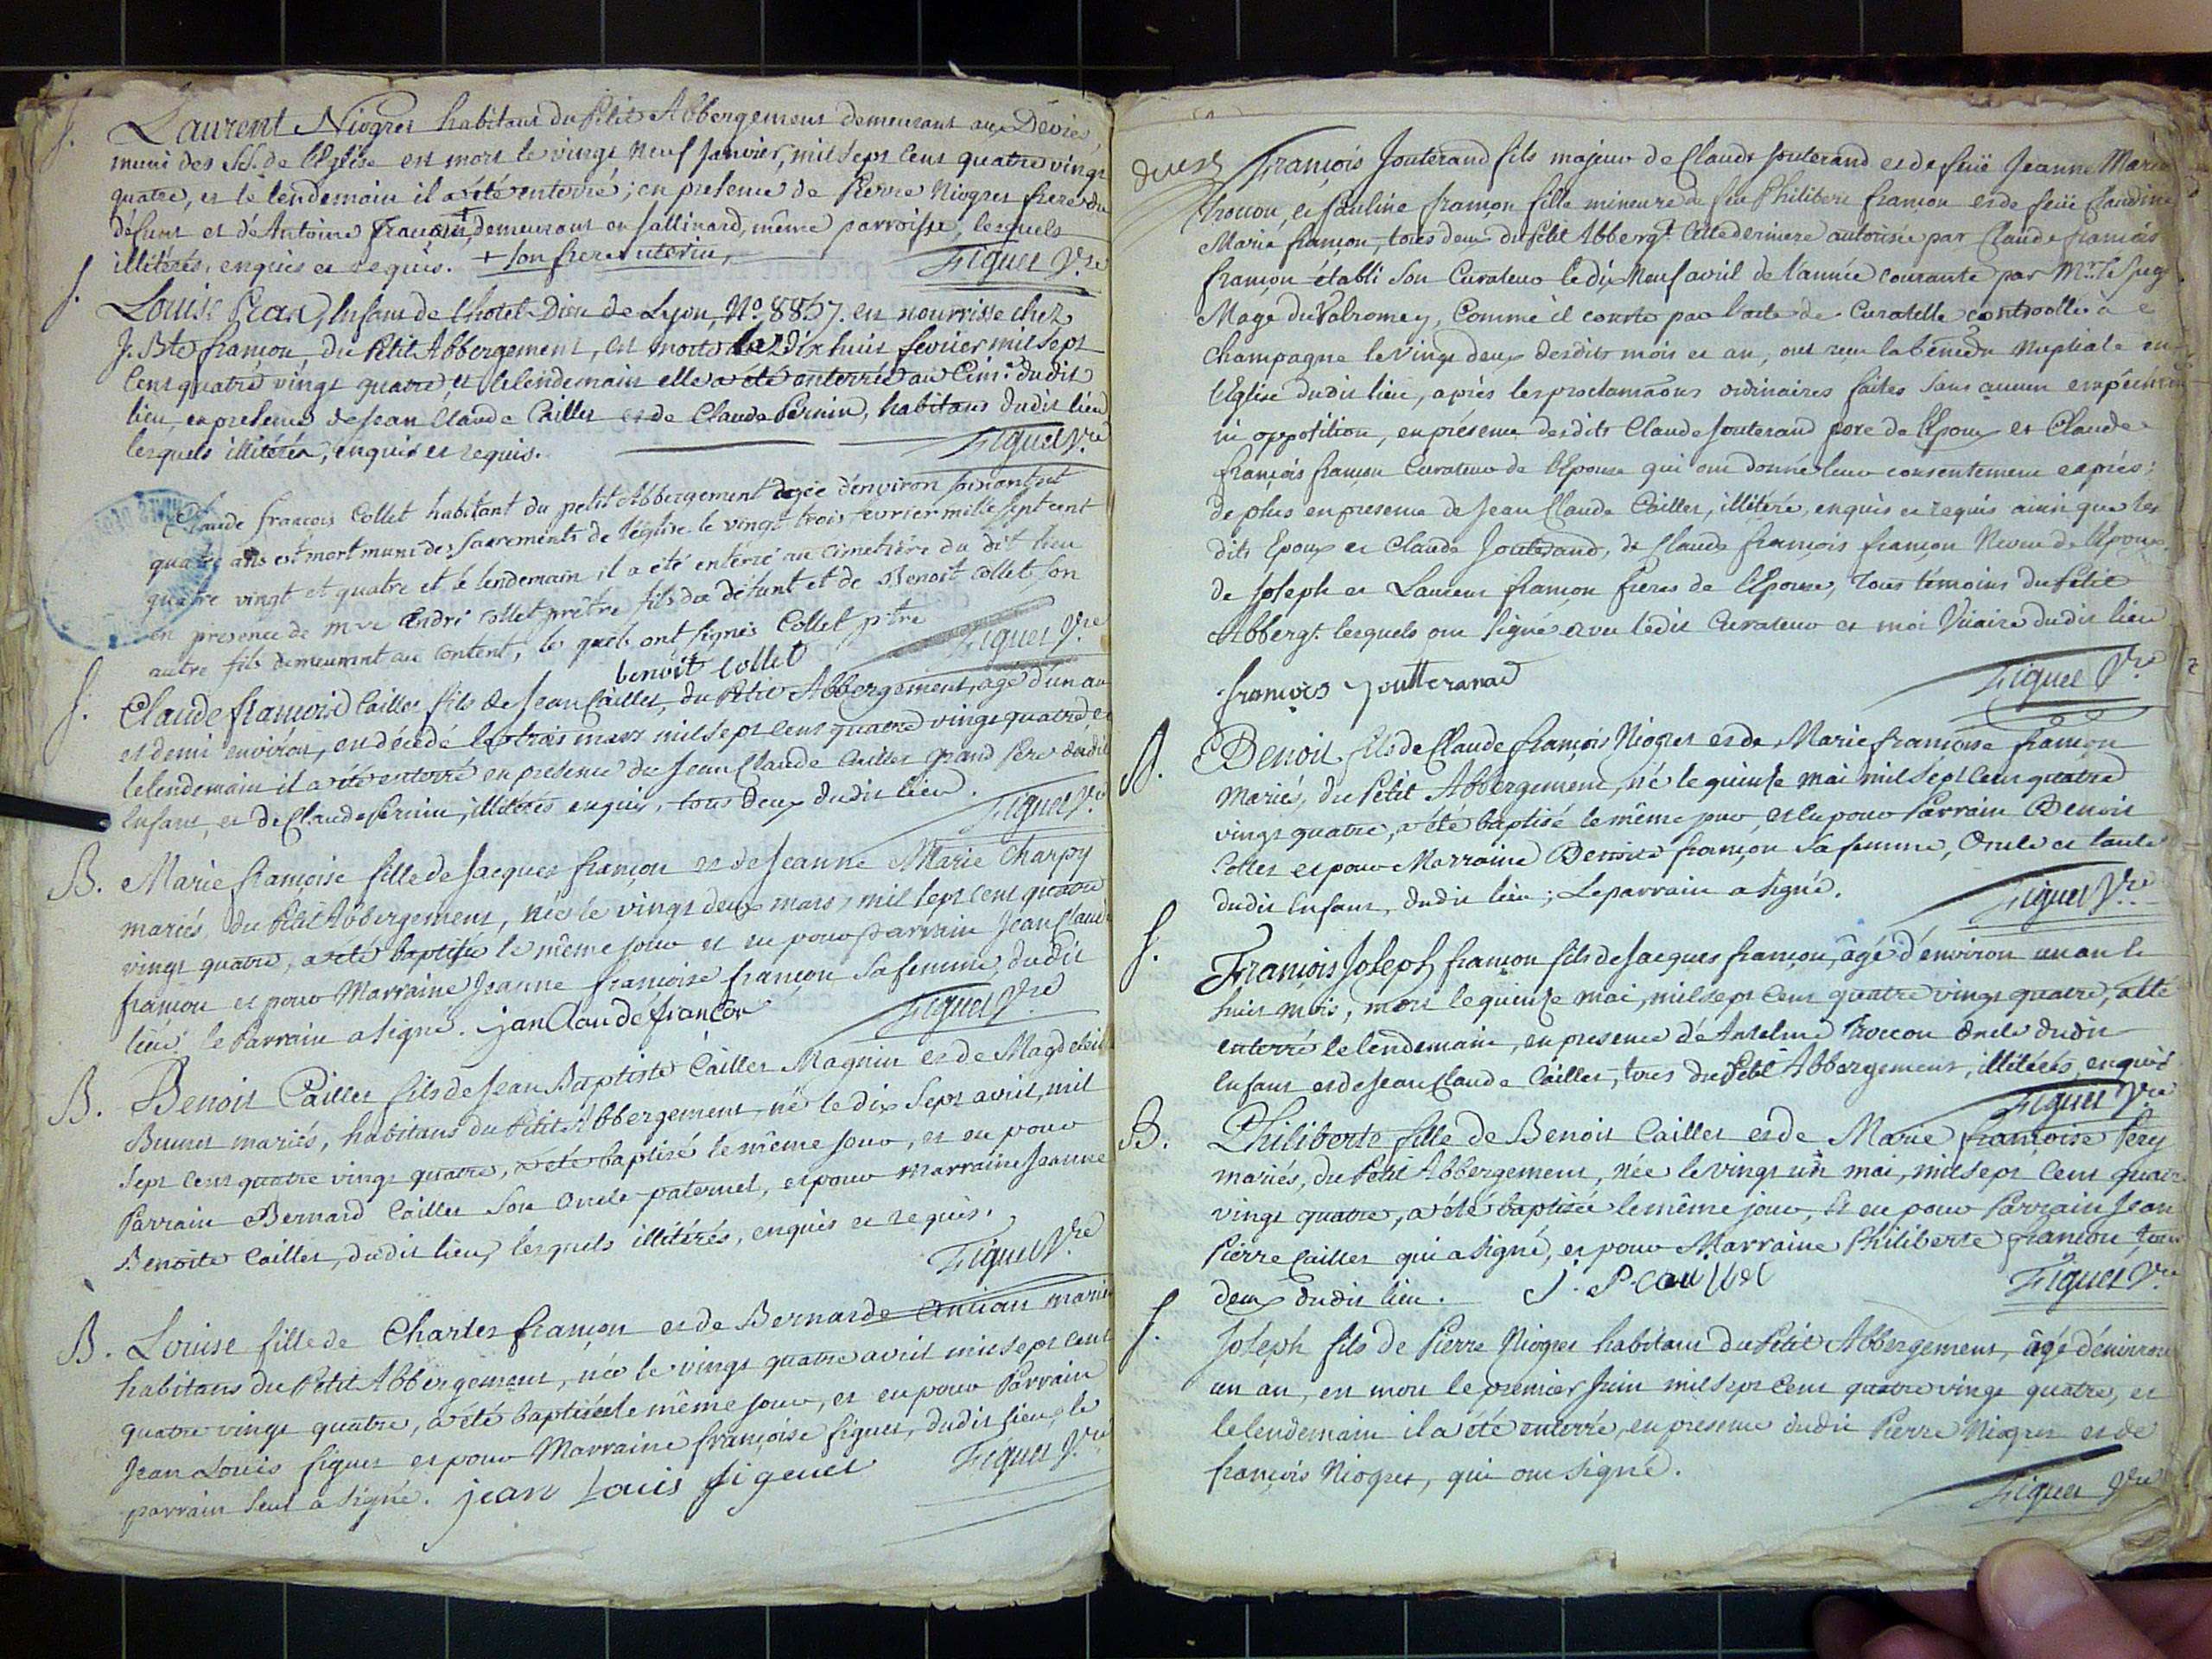 S. Laurent Niogret habitant du Petit Abbergement demeurant aux Devies
muni des SS. de l'Eglise est mort le vingt Neuf Janvier, mil sept Cent quatre vingt
quatre, et le lendemain il a été enterré; en presence de Pierre Niogret frere du
défunt et d'Antoine françon + demeurant en Jallinard, même parroisse, lesquels
illitérés, enquis et requis. + son frere uterin, Figuet V.re
S. Louise Jean, Enfant de l'hotel-Dieu de Lyon, No. 8857. en nourrisse chez
J. Bte françon, du Petit Abbergement, est morte le dix huit fevrier mil sept
Cent quatre vingt quatre, et le lendemain elle a été enterrée au Cim.e dudit
lieu, en presence de Jean Claude Caillet et de Claude Perrin, habitans dudit lieu
lesquels illitérés, enquis et requis. Figuet V.re
Claude françois Collet habitant du petit Abbergement agée d'environ soixante et
quatre ans est mort muni des Sacrements de l'église le vingt trois fevrier mille sept cent
quatre vingt et quatre et le lendemain il a été enterré au cimetière du dit lieu
en presence de mre André Collet prêtre fils du défunt et de Benoit Collet son
autre fils demeurant au content, les quels ont signés Collet ptre
benoit Collet Figuet V.re
S. Claude françois Caillet fils de Jean Caillet, du Petit Abbergement, agé d'un an
et demi environ, est décédé le trois mars mil sept Cent quatre vingt quatre, et
le lendemain il a été enterré en presence de Jean Claude Caillet grand Pere dudit
Enfant, et de Claude Perrin, illitérés enquis, tous deux dudit lieu. Figuet V.re
B. Marie françoise fille de Jacques françon et de Jeanne Marie Charpy
mariés, du Petit Abbergement, née le vingt deux mars, mil sept cent quatre
vingt quatre, a été baptisée le même jour et eu pour parrain Jean Claude
françon et pour Marraine Jeanne françoise françon sa femme, dudit
lieu le Parrain a signé. jan Claude françon Figuet V.re
B. Benoit Caillet fils de Jean Baptiste Caillet Magnin et de Magdeleine
Brunet mariés, habitans du Petit Abbergement, né le dix Sept avril, mil
Sept Cent quatre vingt quatre, a été baptisé le même jour, et eu pour
Parrain Bernard Caillet Son Oncle paternel, et pour Marraine Jeanne
Benoite Caillet, dudit lieu, lesquels illitérés, enquis et requis.
Figuet V.re
B. Louise fille de Charles françon et de Bernarde Ancian mariés
habitans du Petit Abbergement, née le vingt quatre avril mil sept cent
quatre vingt quatre, a été baptisée le même jour, et eu pour Parrain
Jean Louis figuet et pour Marraine françoise figuet, dudit lieu, le
parrain seul a signé. jean Louis figeuet Figuet V.re
François Jouterand fils majeur de Claude Jouterand et de feüe Jeanne Marie
Troccon, et Pauline françon fille mineure de feu Philibert françon et de feüe Claudine
Marie françon, tous deux du Petit Abbergt. Cette derniere autorisée par Claude françois
françon établi son Curateur le dix Neuf avril de l'année courante par Mr. le Juge
Mage du Valromey, Comme il conste par l'acte de Curatelle controollé à
Champagne le Vingt deux desdits mois et an, ont reçu la bénéd.on nuptiale en
l'Eglise dudit lieu, après les proclamaons ordinaires faites sans aucun empêchement
ni opposition, en présence desdits Claude Jouterand pere de l'Epoux et Claude
françois françon Curateur de l'Epouse qui ont donné leur consentement exprès:
de plus en presence de Jean Claude Caillet, illitéré, enquis et requis ainsi que les
dits Epoux et Claude Jouterand, de Claude françois françon Neveu de l'Epouse,
de Joseph et Laurent françon freres de l'Epouse, tous témoins du Petit
Abbergt. lesquels ont signé avec ledit Curateur et moi Vicaire dudit lieu
françois joutterand Figuet V.re
B. Benoit fils de Claude françois Niogret et de Marie françoise françon
mariés, du Petit Abbergement, né le quinze mai mil sept Cent quatre
vingt quatre, a été baptisé le même jour, et eu pour Parrain Benoit
Collet et pour Marraine Benoite françon sa femme, Oncle et tante
dudit Enfant, dudit lieu; Le parrain a signé. Figuet V.re
S. François Joseph françon fils de Jacques françon, âgé d'environ un an et
huit mois, mort le quinze mai, mil sept Cent quatre vingt quatre, a été
enterré le lendemain, en presence d'Antelme Troccon Oncle dudit
Enfant et de Jean Claude Caillet, tous du Petit Abbergement, illitérés, enquis
Figuet V.re
B. Philiberte fille de Benoit Caillet et de Marie françoise Péry
mariés, du Petit Abbergement, née le vingt un mai, mil sept Cent quatre
vingt quatre, a été baptisée le même jour, Et eu pour Parrain Jean
Pierre Caillet qui a signé, et pour Marraine Philiberte françon tous
deux dudit lieu. J. P caillet Figuet V.re
S. Joseph fils de Pierre Niogret habitant du Petit Abbergement, âgé d'environ
un an, est mort le premier Juin mil sept Cent quatre vingt quatre, et
le lendemain il a été enterré, en presence dudit Pierre Niogret et de
françois Niogret, qui ont signé.
Figuet V.re